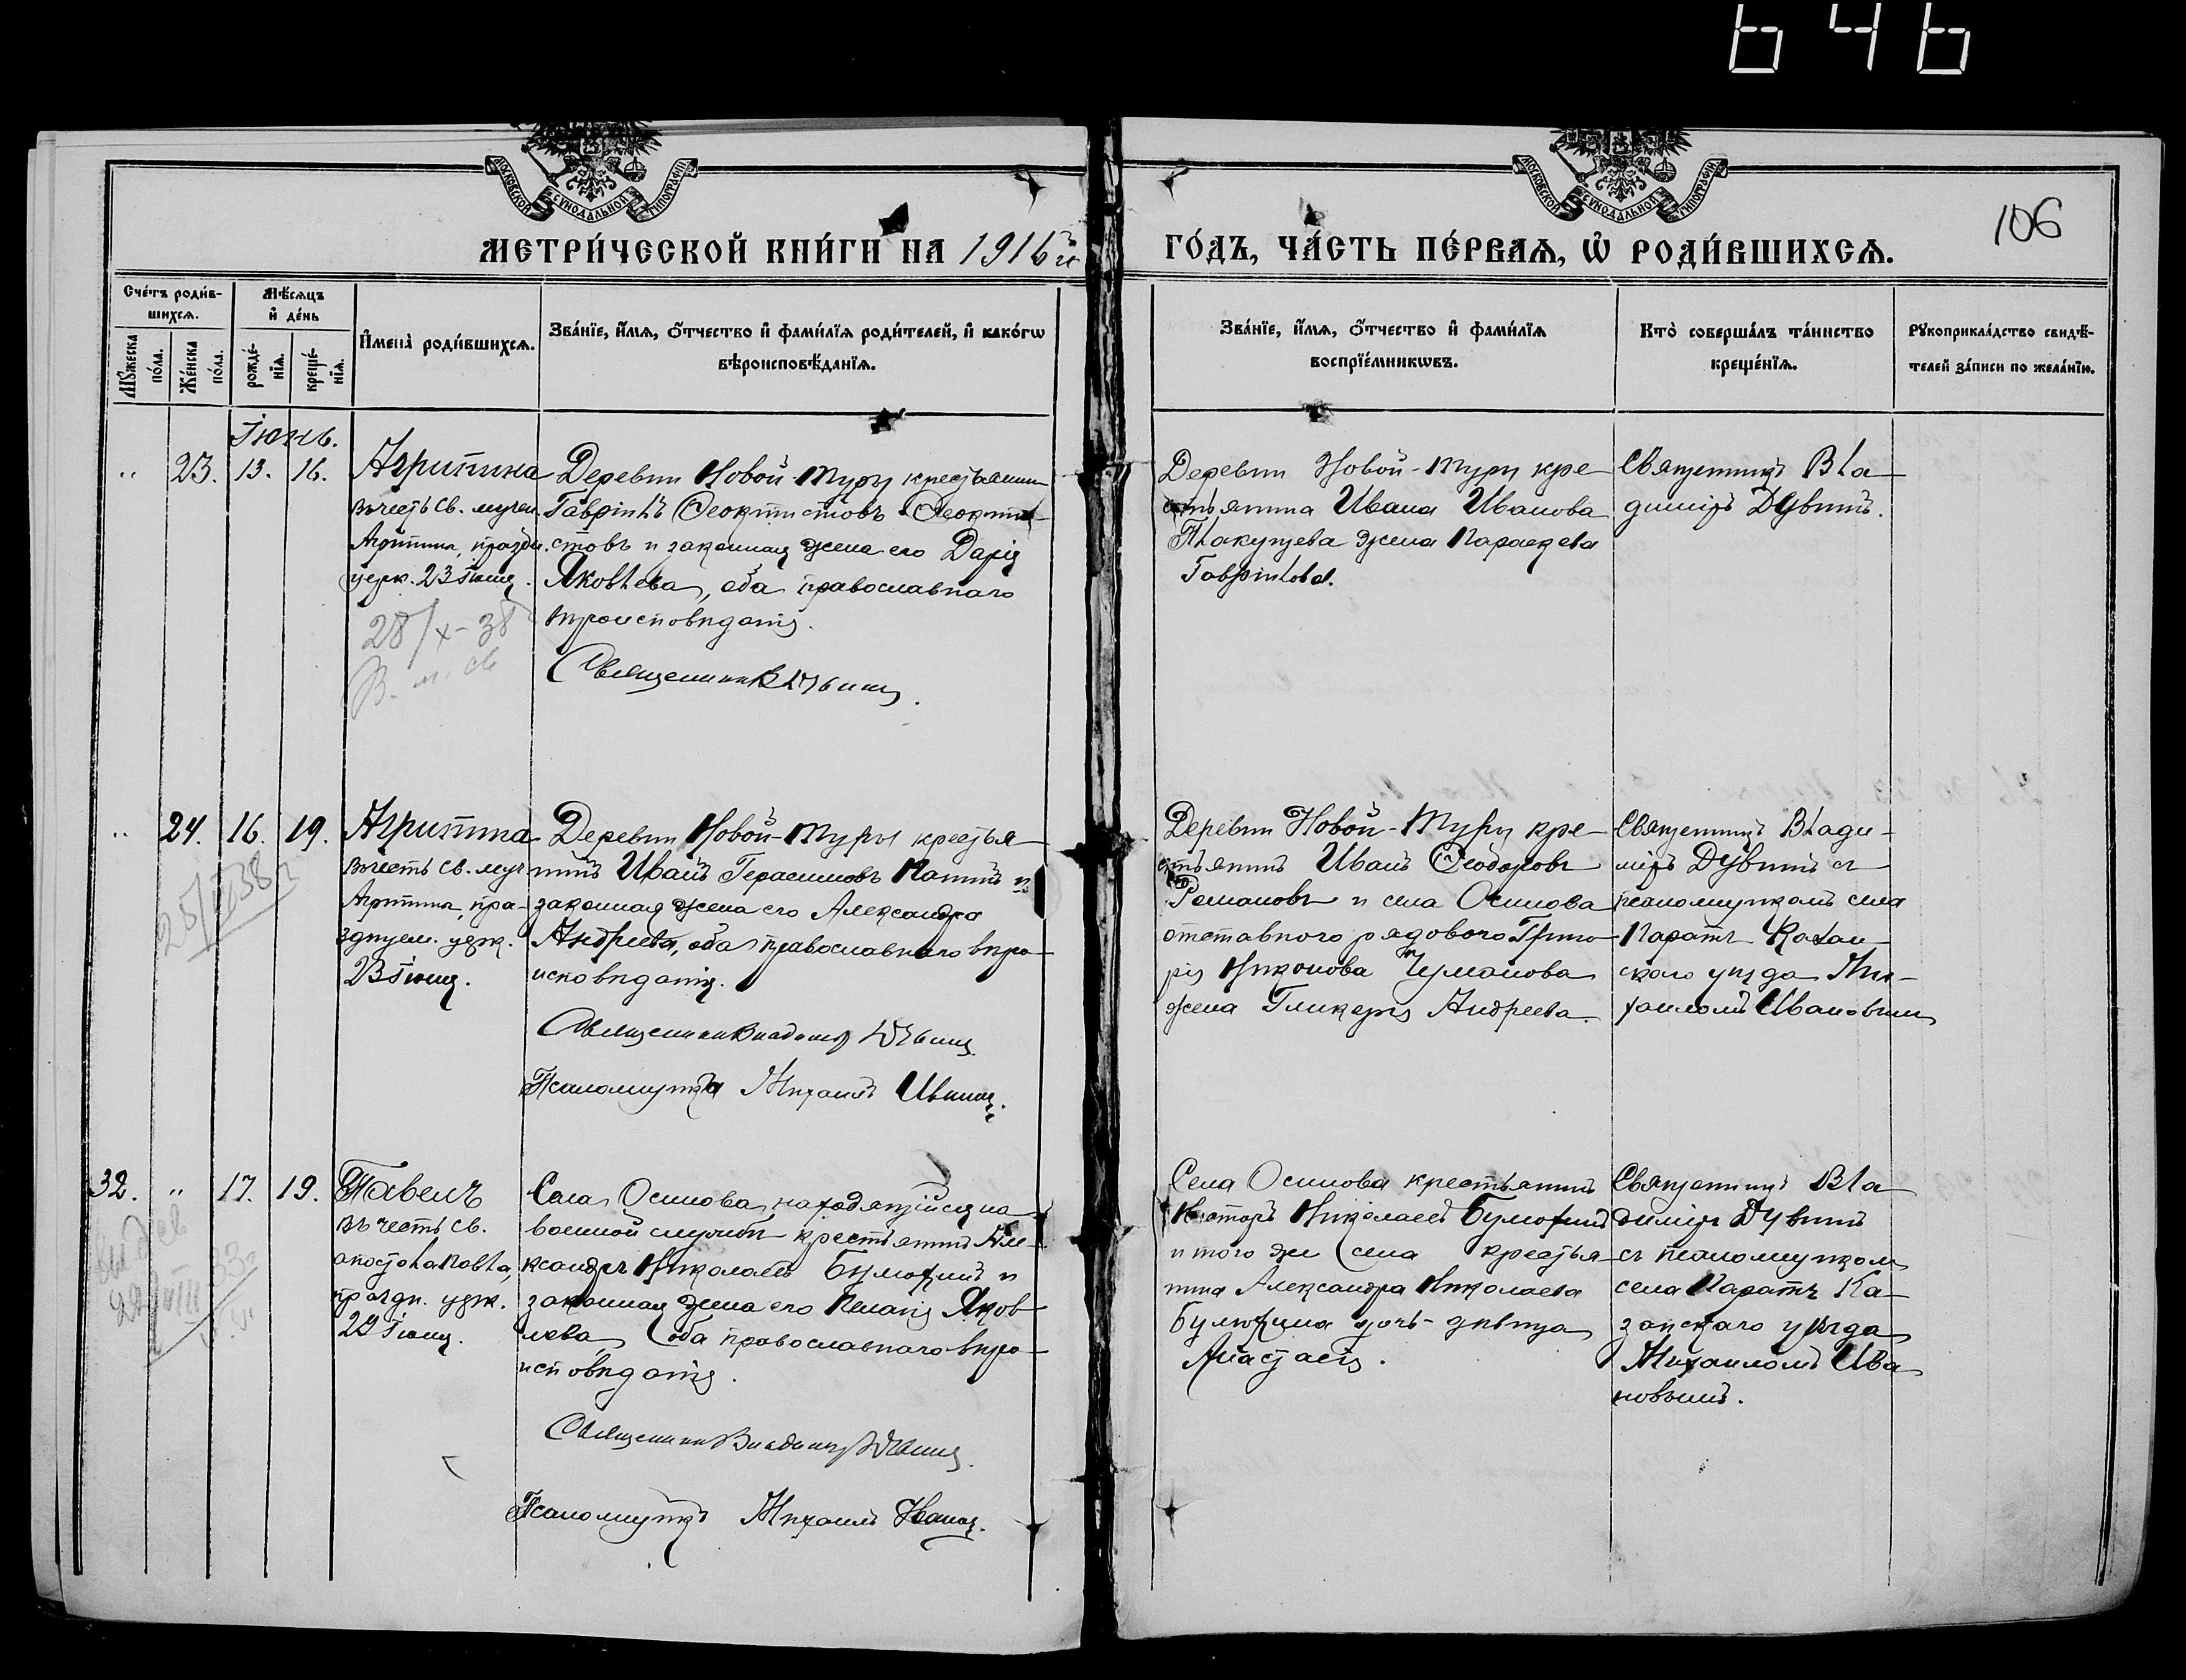 646
МОСКОВСКОЙ СѴНОДАЛЬНОЙ ТИПОГРАФІИ
МОСКОВСКОЙ СѴНОДАЛЬНОЙ ТИПОГРАФІИ
106
МЕТРИ́ЧЕСКОЙ КНИ́ГИ НА 1916й
ГО́ДЪ, ЧА́СТЬ ПЕ́РВАѦ, Ѡ҆ РОДИ́ВШИХСѦ.
Сче́тъ роди́в-
шихсѧ.
Мѣ́сѧцъ
и҆ де́нь
Мꙋ́жеска
по́ла.
Же́нска
по́ла.
рожде́-
нїѧ.
креще́-
нїѧ.
И҆мена̀ роди́вшихсѧ.
Зва́нїе, и҆́мѧ, о҆́тчество и҆ фами́лїѧ роди́телей, и҆ како́гѡ
вѣроисповѣ́данїѧ.
Зва́нїе, и҆́мѧ, о҆́тчество и҆ фами́лїѧ
воспрїе́мникѡвъ.
Кто̀ соверша́лъ та́инство
креще́нїѧ.
Рꙋкоприкла́дство свидѣ́-
телей за́писи по жела́нїю.
Іюнь.
„ 23. 13. 16.
Агриппина
въ честь св. мучен.
Агриппины, праздн.
церк. 23 Іюня.
28/X-38
Деревни Новой-Туры крестьянин
Гавріилъ Ѳеоктистовъ Ѳеокти-
стовъ и законная жена его Дарія
Яковлева, оба православнаго
вѣроисповѣданія.
Священникъ В. Дубинъ.
Деревни Новой-Туры кре-
стьянина Ивана Иванова
жена Параскева
Гавріилова.
Священникъ Вла-
диміръ Дубинъ.
„ 24. 16. 19.
Агриппина
въ честь св. муч.
Агриппины, пра-
зднуем. церк.
23 Іюня.
Деревни Новой-Туры крестья-
нинъ Иванъ Герасимовъ и
законная жена его Александра
Андреева, оба православнаго вѣро-
исповѣданія.
Священникъ Владиміръ Дубинъ.
Псаломщикъ Михаилъ Ивановъ.
Деревни Новой-Туры кре-
стьянинъ Иванъ Ѳеодоровъ
Романовъ и села Осинова
отставного рядового Григо-
рія Никонова жена
Гликерія Андреева.
Священникъ Влади-
міръ Дубинъ съ
псаломщикомъ села
Паратъ Казан-
скаго уѣзда Ми-
хаиломъ Ивановым
32. „ 17. 19.
Павелъ
въ честь св.
апостола Павла,
праздн. церк.
29 Іюня.
Села Осинова, находящійся на
военной службѣ крестьянинъ Але-
ксандръ Николаевъ и
законная жена его Пелагія Яков-
лева, оба православнаго вѣро-
исповѣданія.
Священникъ Владиміръ Дубинъ.
Псаломщикъ Михаилъ Ивановъ.
Села Осинова крестьянинъ
Несторъ Николаевъ
и того же села крестья-
нина Александра Николаева
дочь-дѣвица
Анастасія.
Священникъ Вла-
диміръ Дубинъ
съ псаломщиком
села Паратъ Ка-
занскаго уѣзда
Михаиломъ Ива-
новымъ.